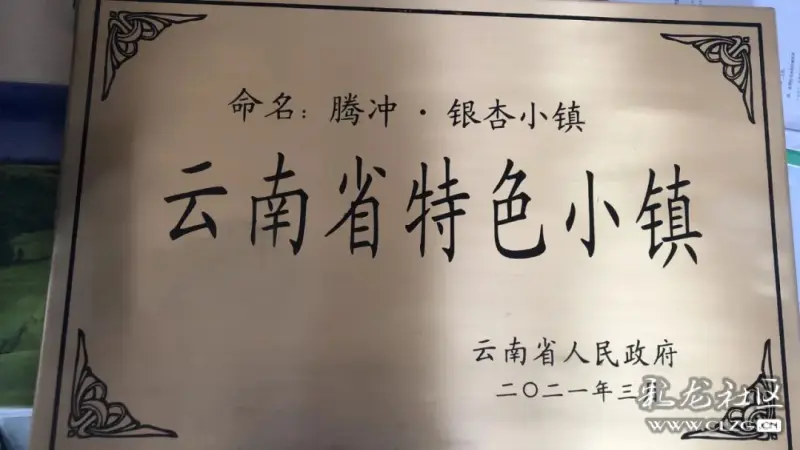 命名：腾冲·银杏小镇
云南省特色小镇
云南省人民政府
二〇二一年三月
龙社区
WWW.CLZG.CN